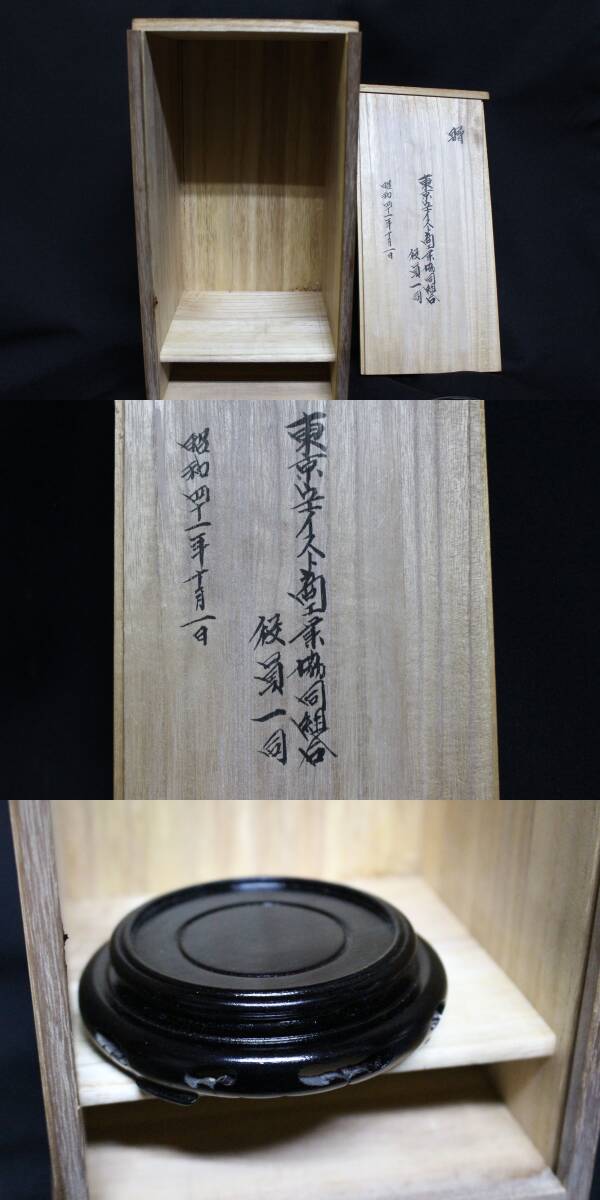 贈
東京ウエイスト商工業協同組合
役員一同
昭和四十一年十月一日
東京ウエイスト商工業協同組合
役員一同
昭和四十一年十月一日